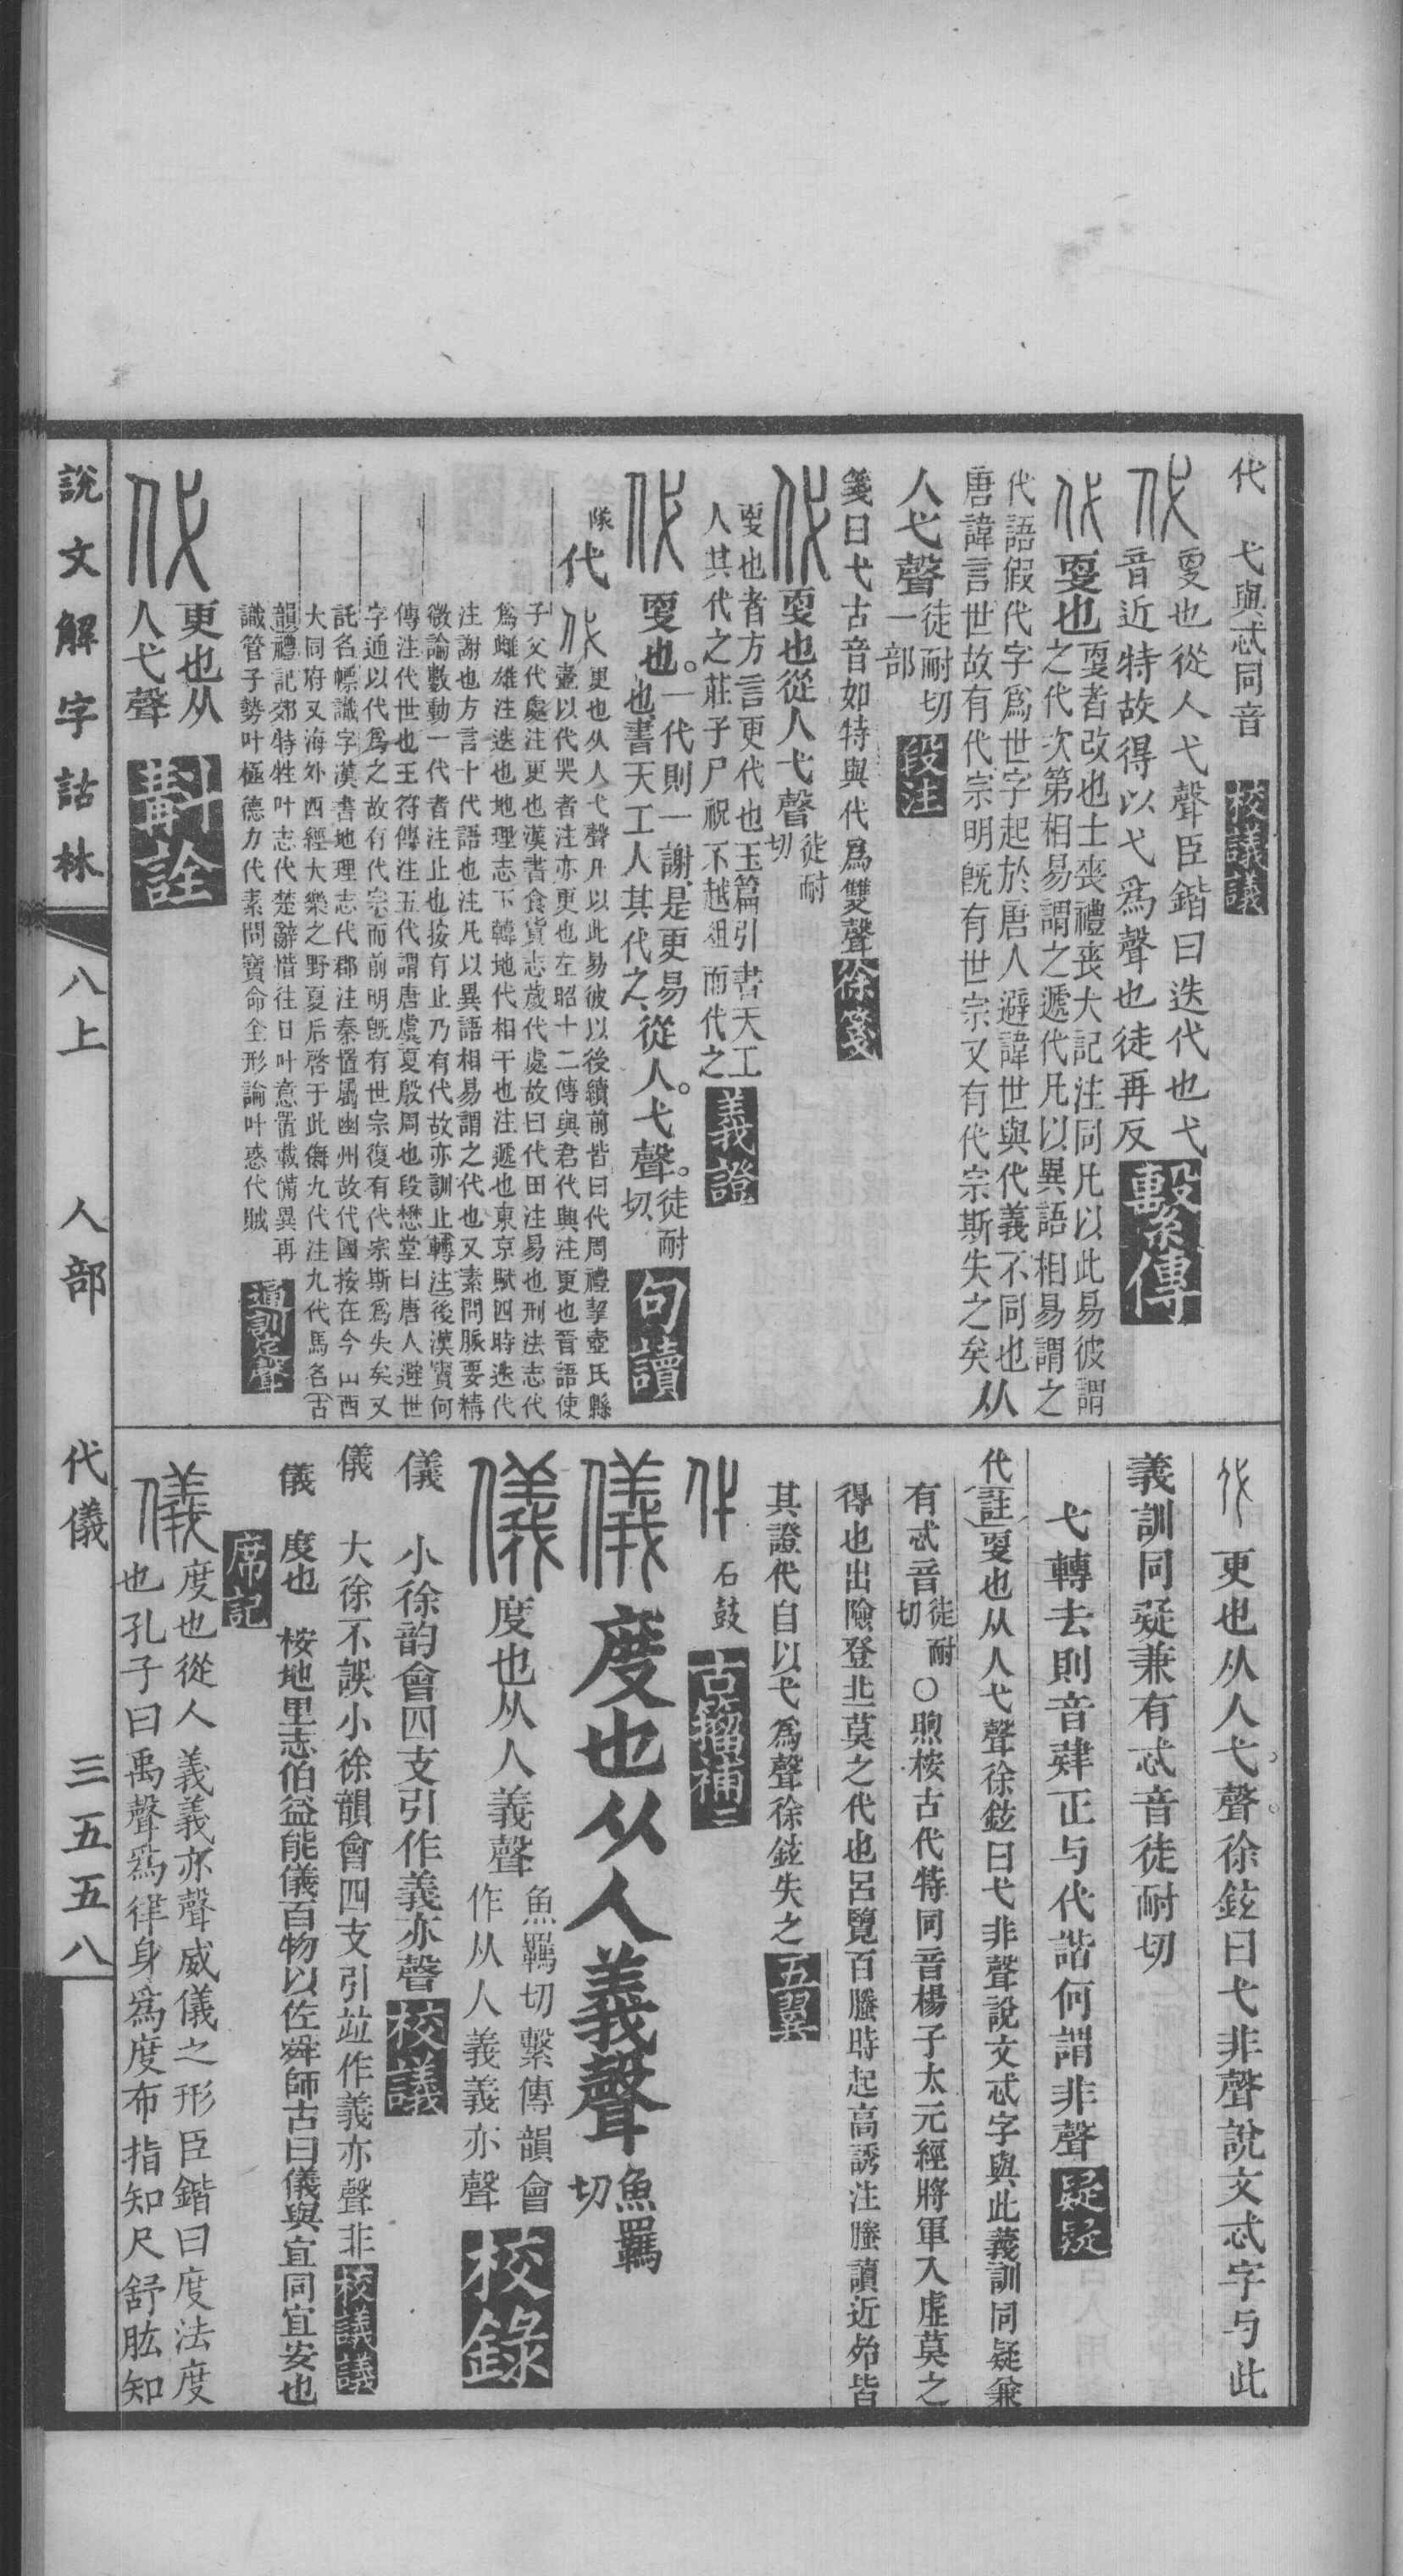 代　弋與忒同音　校議議
代　㪅也從人弋聲臣鍇曰迭代也弋
音近特故得以弋爲聲也徒再反　繫傳
代　㪅也㪅者改也士喪禮喪大記注同凡以此易彼謂
之代次第相易謂之遞代凡以異語相易謂之
代語假代字爲世字起於唐人避諱世與代義不同也
唐諱言世故有代宗明旣有世宗又有代宗斯失之矣　从
人弋聲　徒耐切
一部　段注
箋曰弋古音如特與代爲雙聲　徐箋
代　㪅也從人弋聲　徒耐
切
㪅也者方言更代也玉篇引書天工
人其代之莊子尸祝不越俎而代之　義證
代　㪅也。一代則一謝是更易
也書天工人其代之從人。弋聲。徒耐
切　句讀
隊
代　更也从人弋聲凡以此易彼以後續前皆曰代周禮挈壺氏縣
壺以代哭者注亦更也左昭十二傳與君代興注更也晉語使
子父代處注更也漢書食貨志歲代處故曰代田注易也刑法志代
爲雌雄注迭也地理志下韓地代相干也注遞也東京賦四時迭代
注謝也方言十代語也注凡以異語相易謂之代也又素問脈要精
微論數動一代者注止也按有止乃有代故亦訓止轉注後漢竇何
傳注代世也王符傳注五代謂唐虞夏殷周也段懋堂曰唐人避世
字通以代爲之故有代宗而前明旣有世宗復有代宗斯爲失矣又
託名幖識字漢書地理志代郡注秦置屬幽州故代國按在今山西
大同府又海外西經大樂之野夏后啓于此儛九代注九代馬名古
韻禮記郊特牲叶志代楚辭惜往日叶意置載備異再
識管子勢叶極德力代素問寶命全形論叶惑代賊　通訓定聲
代　更也从
人弋聲　斠詮
代　更也从人弋聲徐鉉曰弋非聲說文忒字与此
義訓同疑兼有忒音徒耐切
弋轉去則音肄正与代諧何謂非聲　疑疑
代註㪅也从人弋聲徐鉉曰弋非聲說文忒字與此義訓同疑兼
有忒音徒耐
切〇煦桉古代特同音楊子太元經將軍入虛莫之
得也出險登北莫之代也呂覽百螣時起高誘注螣讀近殆皆
其證代自以弋爲聲徐鉉失之　五翼
石鼓　古籀補二
儀　度也从人義聲　魚羈
切
儀　度也从人義聲　魚羈切繫傳韻會
作从人義義亦聲　校錄
儀　小徐韵會四支引作義亦聲　校議
儀　大徐不誤小徐韻會四支引竝作義亦聲非　校議議
儀　度也　桉地里志伯益能儀百物以佐舜師古曰儀與宜同宜安也
席記
儀　度也從人義義亦聲威儀之形臣鍇曰度法度
也孔子曰禹聲爲律身爲度布指知尺舒肱知
說文解字詁林　八上　人部　代儀　三五五八